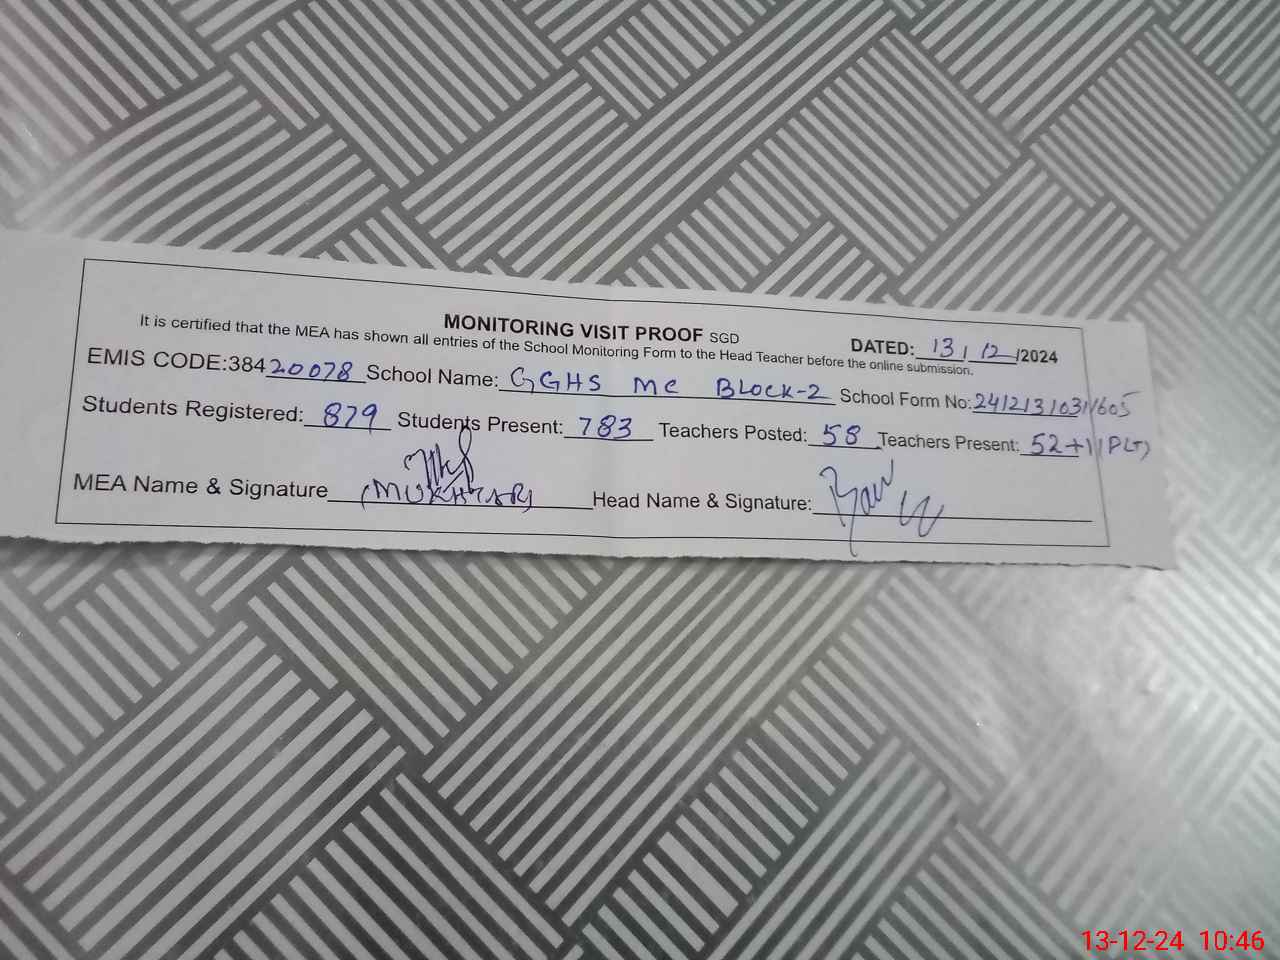 MONITORING VISIT PROOF SGD
DATED: 13/12/2024
It is certified that the MEA has shown all entries of the School Monitoring Form to the Head Teacher before the online submission.
EMIS CODE:38420078 School Name: GGHS MC BLOCK-2 School Form No:
Students Registered: 879 Students Present: 783 Teachers Posted: 58 Teachers Present: 52+1(PLT)
MEA Name & Signature (MUKHTAR) Head Name & Signature:
13-12-24 10:46